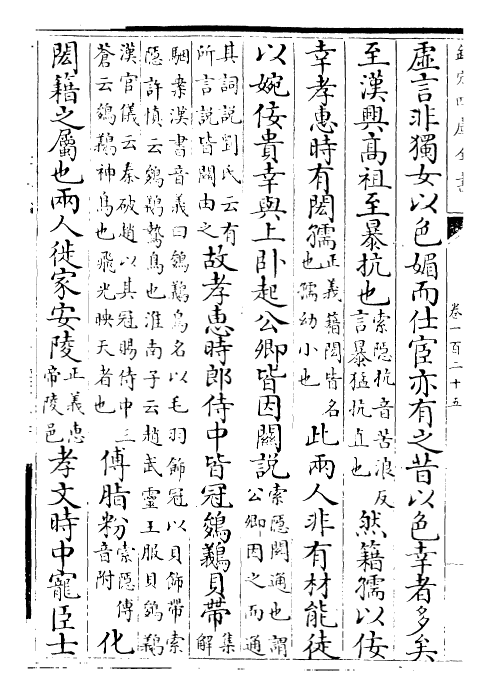 欽定四庫全書
卷一百二十五
虛言非獨女以色媚而仕宦亦有之昔以色幸者多矣
至漢興髙祖至暴抗也索隠抗音苦浪反言暴猛抗直也然籍孺以佞
幸孝惠時有閎孺正義籍閎皆名也孺幼小也此兩人非有材能徒
以婉佞貴幸與上卧起公卿皆因關說索隠關通也謂公卿因之而通
其詞說劉氏云有所言說皆關由之故孝惠時郎侍中皆冠鵕鸃貝帶集解
駰案漢書音義曰鵕鸃鳥名以毛羽飾冠以貝飾帶索
隠許慎云鵕鸃鷩鳥也淮南子云趙武靈王服貝鵕鸃
漢官儀云秦破趙以其冠賜侍中三
蒼云鵕鸃神鳥也飛光映天者也傅脂粉索隠傅音附化
閎籍之屬也兩人徙家安陵正義惠帝陵邑孝文時中寵臣士